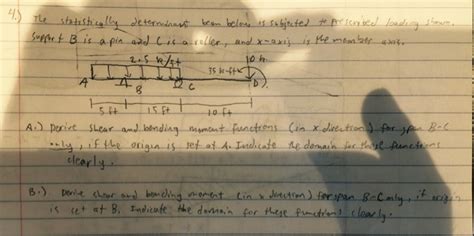 4.) The statistically determinant beam below is subjected to prescribed loading shown.
Support B is a pin and C is a roller, and x-axis is the member axis.
2.5 k/ft
35 k-ft
10
A
B
C
D
5 ft
15 ft
10 ft
A.) Derive shear and bending moment functions (in x direction) for span B-C
only, if the origin is set at A. Indicate the domain for these functions
clearly.
B.) Derive shear and bending moment (in x direction) for span B-C only, if origin
is set at B. Indicate the domain for these functions clearly.